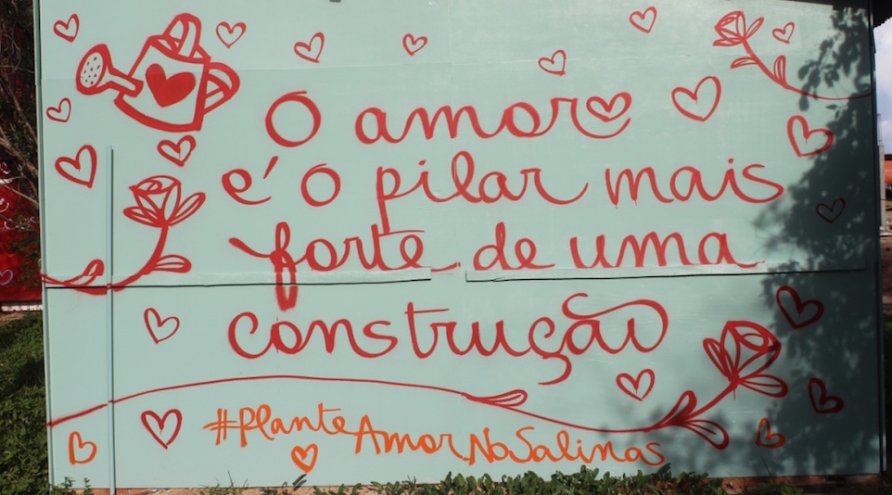 O amor
é o pilar mais
forte de uma
construção
#PlanteAmorNaSalinas